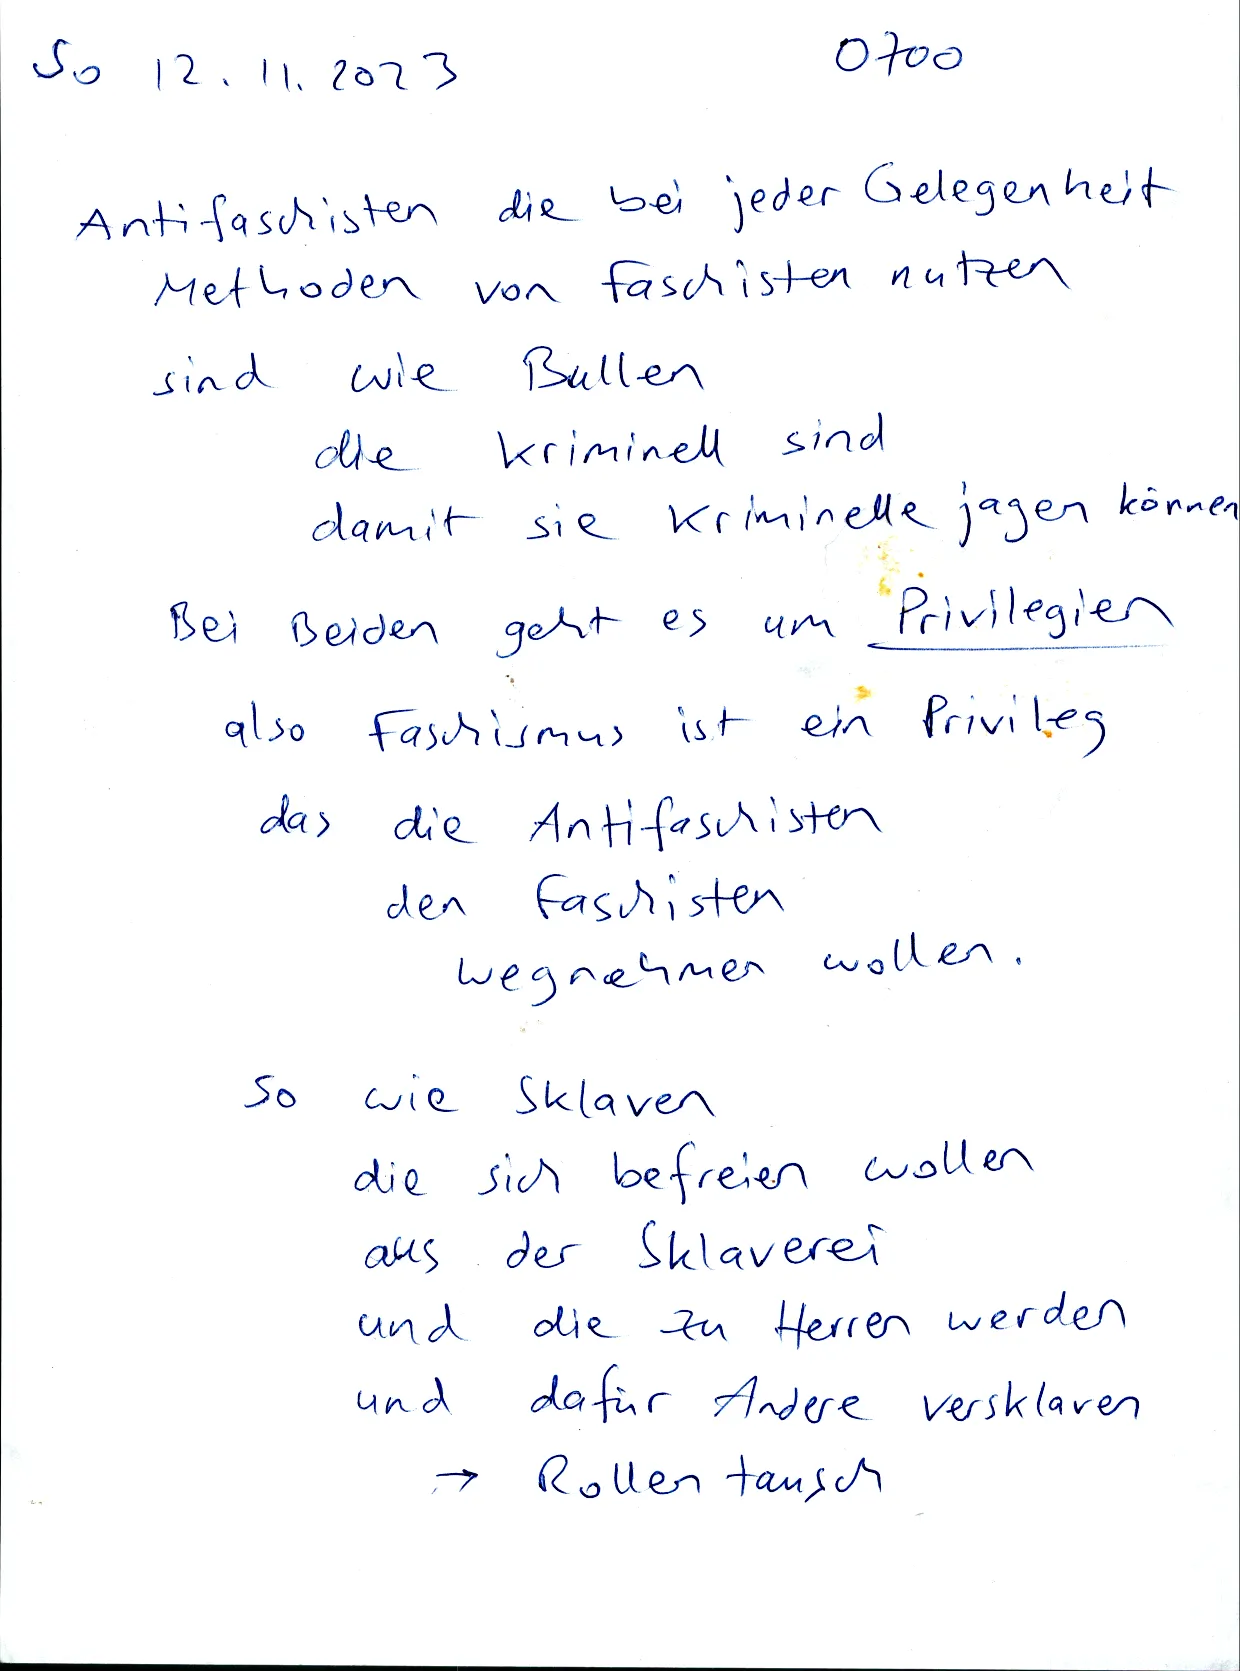 So 12.11.2023 0700
Antifaschisten die bei jeder Gelegenheit
Methoden von Faschisten nutzen
sind wie Bullen
die kriminell sind
damit sie Kriminelle jagen können
Bei Beiden geht es um Privilegien
also Faschismus ist ein Privileg
das die Antifaschisten
den Faschisten
wegnehmen wollen.
So wie Sklaven
die sich befreien wollen
aus der Sklaverei
und die zu Herren werden
und dafür Andere versklaven
→ Rollentausch